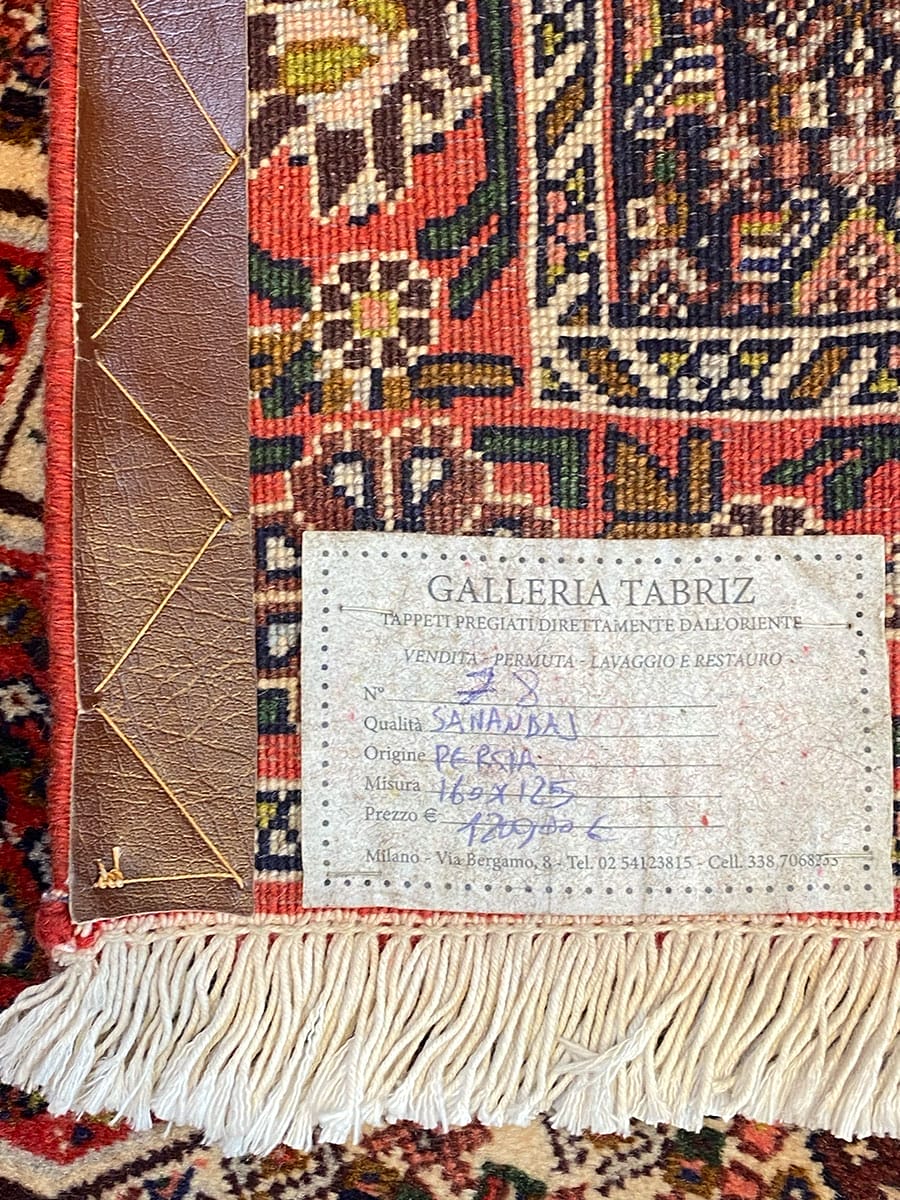 GALLERIA TABRIZ
TAPPETI PREGIATI DIRETTAMENTE DALL'ORIENTE
VENDITA - PERMUTA - LAVAGGIO E RESTAURO
N° 78
Qualità SANANDAJ
Origine PERSIA
Misura 160x125
Prezzo € 1200,00 €
Milano - Via Bergamo, 8 - Tel. 02 54123815 - Cell. 338